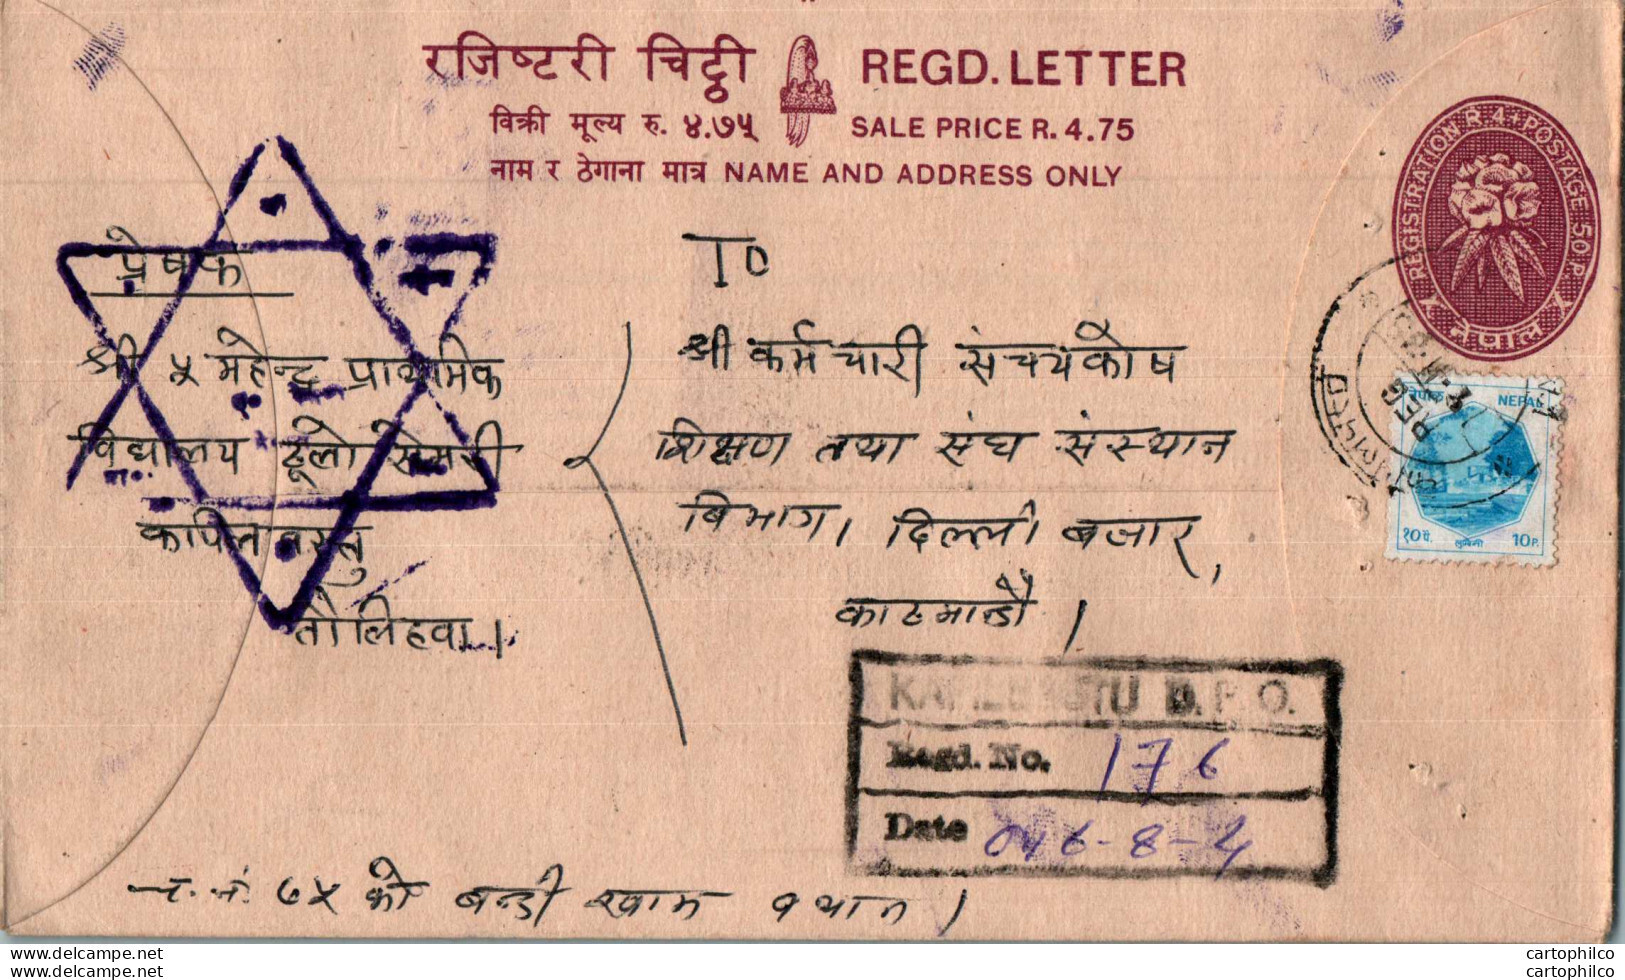 रजिष्टरी चिट्ठी REGD. LETTER
विक्री मूल्य रु. ४.७५ SALE PRICE R. 4.75
नाम र ठेगाना मात्र NAME AND ADDRESS ONLY
REGISTRATION R. 4 + POSTAGE 50 P.
नेपाल
प्रेषक
श्री ५ महेन्द्र प्राथमिक
विद्यालय ठूलो
कपिलवस्तु
तौलिहवा।
TO
श्री कर्मचारी संचयकोष
शिक्षण तथा संघ संस्थान
बिभाग। दिल्ली बजार,
काठमान्डौ।
नेपाल NEPAL
१० पै. लुम्बिनी 10 P.
REG
D.P.O.
Regd. No. 176
Date 046-8-4
च. नं. ७५ को बन्डी खाम १ थान।
cartophilco
cartophilco